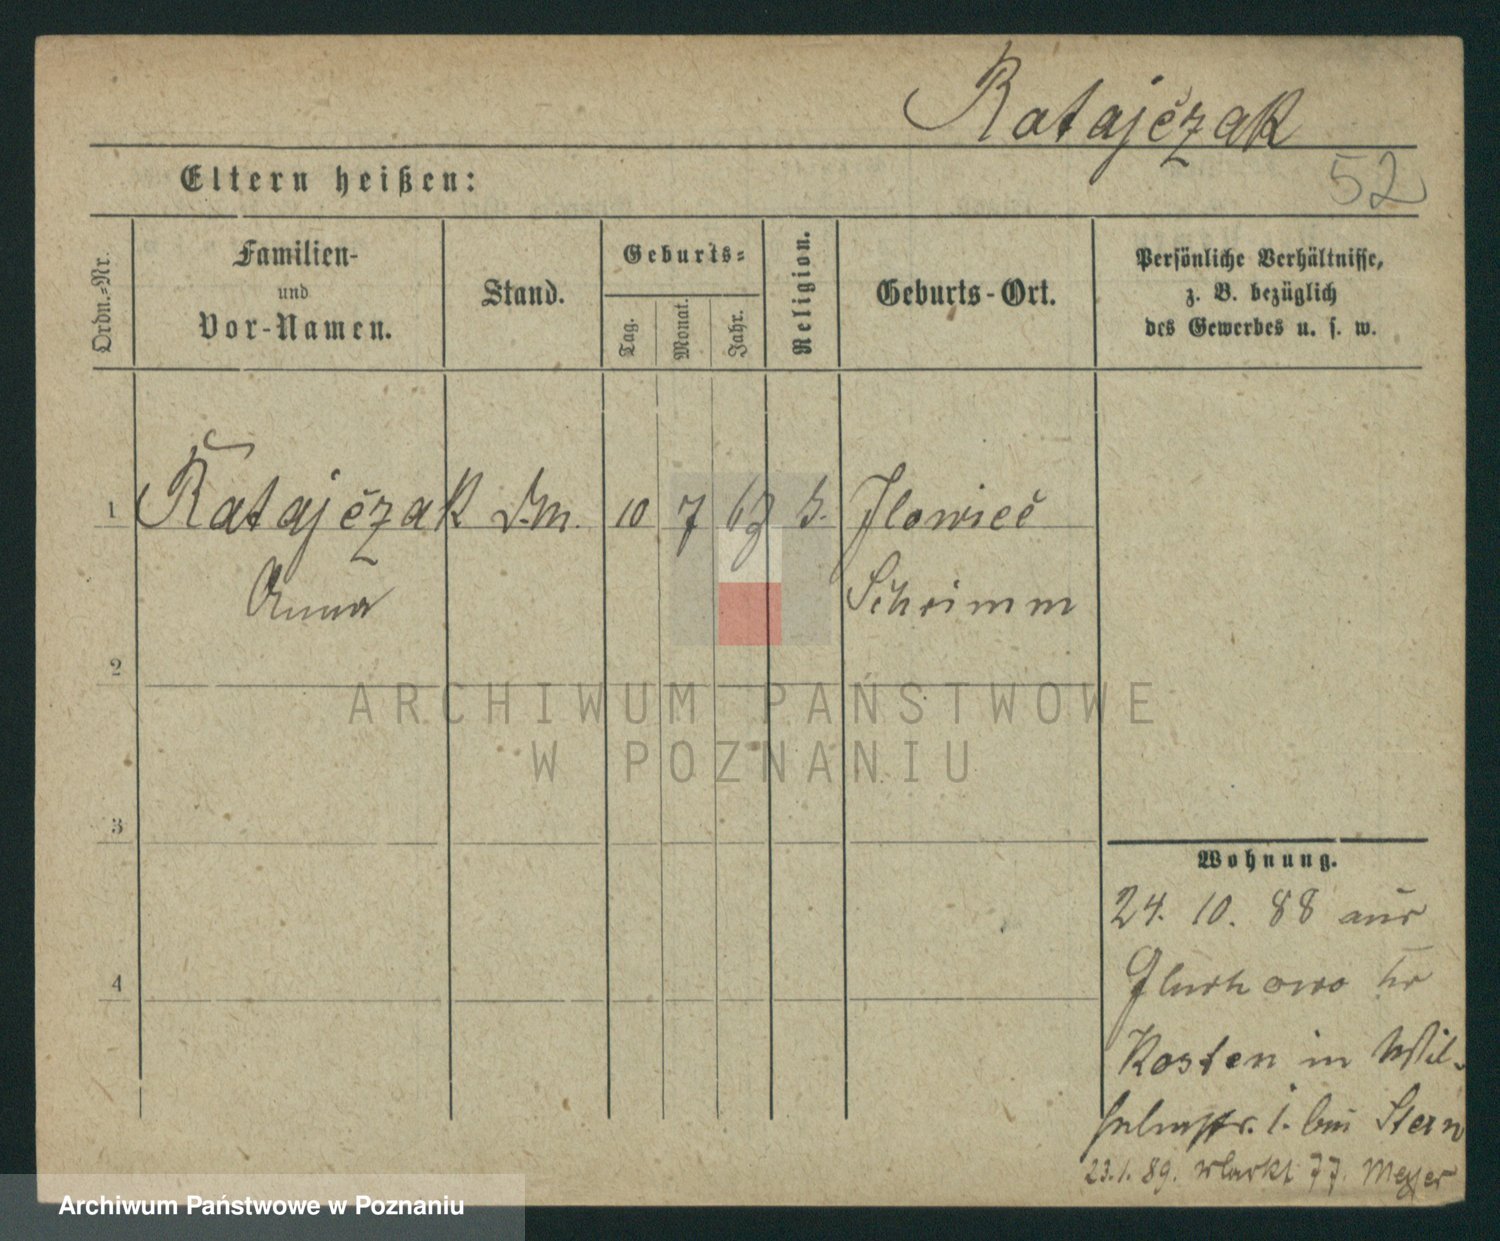 Ratajčzak
Eltern heißen:
52
Ordn.-Nr.
Familien-
und
Vor-Namen.
Stand.
Geburts-
Tag.
Monat.
Jahr.
Religion.
Geburts-Ort.
Persönliche Verhältnisse,
z. B. bezüglich
des Gewerbes u. s. w.
1 Ratajčzak D.m. 10 7 63 Jlowieč
Anna Schrimm
2
3
4
ARCHIWUM PAŃSTWOWE
W POZNANIU
Wohnung.
24. 10. 88 aus
Gluchowo kr
Kosten in Wil-
helmstr. 1. bei Stern
23.1.89. Markt 77. Meyer
Archiwum Państwowe w Poznaniu